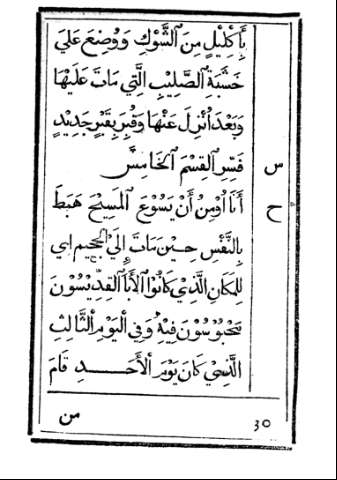 بِأَكْلِيْلٍ مِنَ ٱلشَّوْكِ وَوُضِعَ عَلَي
خَشَبَةِ ٱلصَّلِيْبِ ٱلَّتِي مَاتَ عَلَيْهَا
وَبَعْدَ أُنْزِلَ عَنْهَا وَقُبِرَ بِقَبْرٍ جَدِيْدٍ
س فَسِّرِ ٱلقِسْمَ ٱلخَامِسَ
ح أَنَا أُوْمِنُ أَنْ يَسُوْعَ ٱلمَسِيْحَ هَبَطَ
بِالنَّفْسِ حِيْنَ مَاتَ إِلَيِ ٱلجَحِيْمِ اي
لِلمَكَانِ ٱلَّذِيْ كَانُوْا ٱلأَبَا ٱلقِدِّيْسُوْنَ
مَحْبُوْسُوْنَ فِيْهِ وَفِي ٱليَوْمِ ٱلثَّالِثِ
ٱلَّذِيْ كَانَ يَوْمَ ٱلأَحَدِ قَامَ
30 من